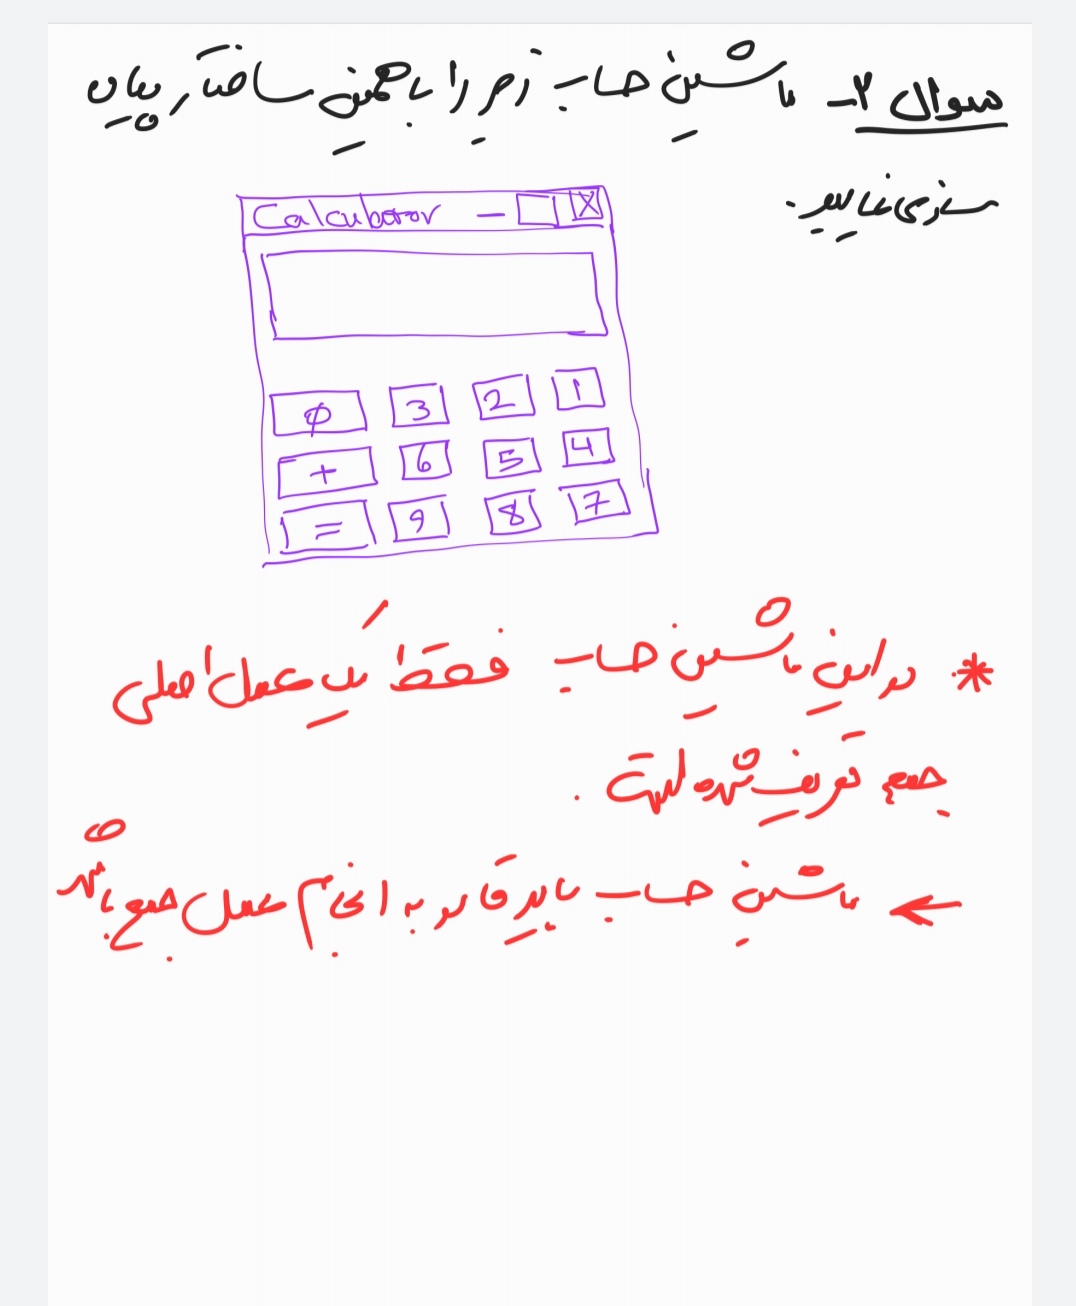 سوال ۲- ماشین حساب زیر را با همین ساختار پیاده
سازی نمایید.
Calculator - □ X
φ 3 2 1
+ 6 5 4
= 9 8 7
* در این ماشین حساب فقط یک عمل اصلی
جمع تعریف شده است.
← ماشین حساب باید قادر به انجام عمل جمع باشد